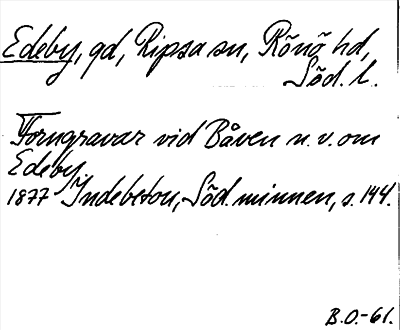 Edeby, gd, Ripsa sn, Rönö hd,
Söd. l.
Forngravar vid Båven n. v. om
Edeby.
1877 Indebetou, Söd. minnen, s. 144.
B.O.-61.